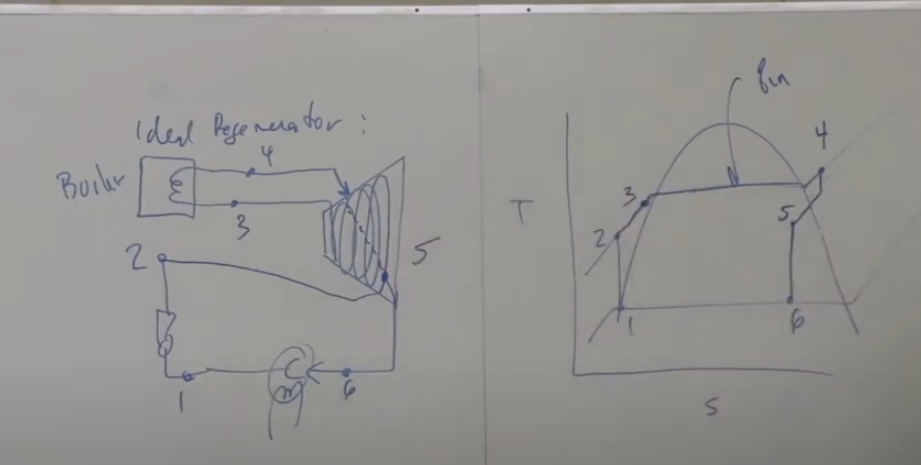 Ideal Regenerator:
4
Boiler
3
2
5
1
6
qin
T
4
3
2
5
1
6
s